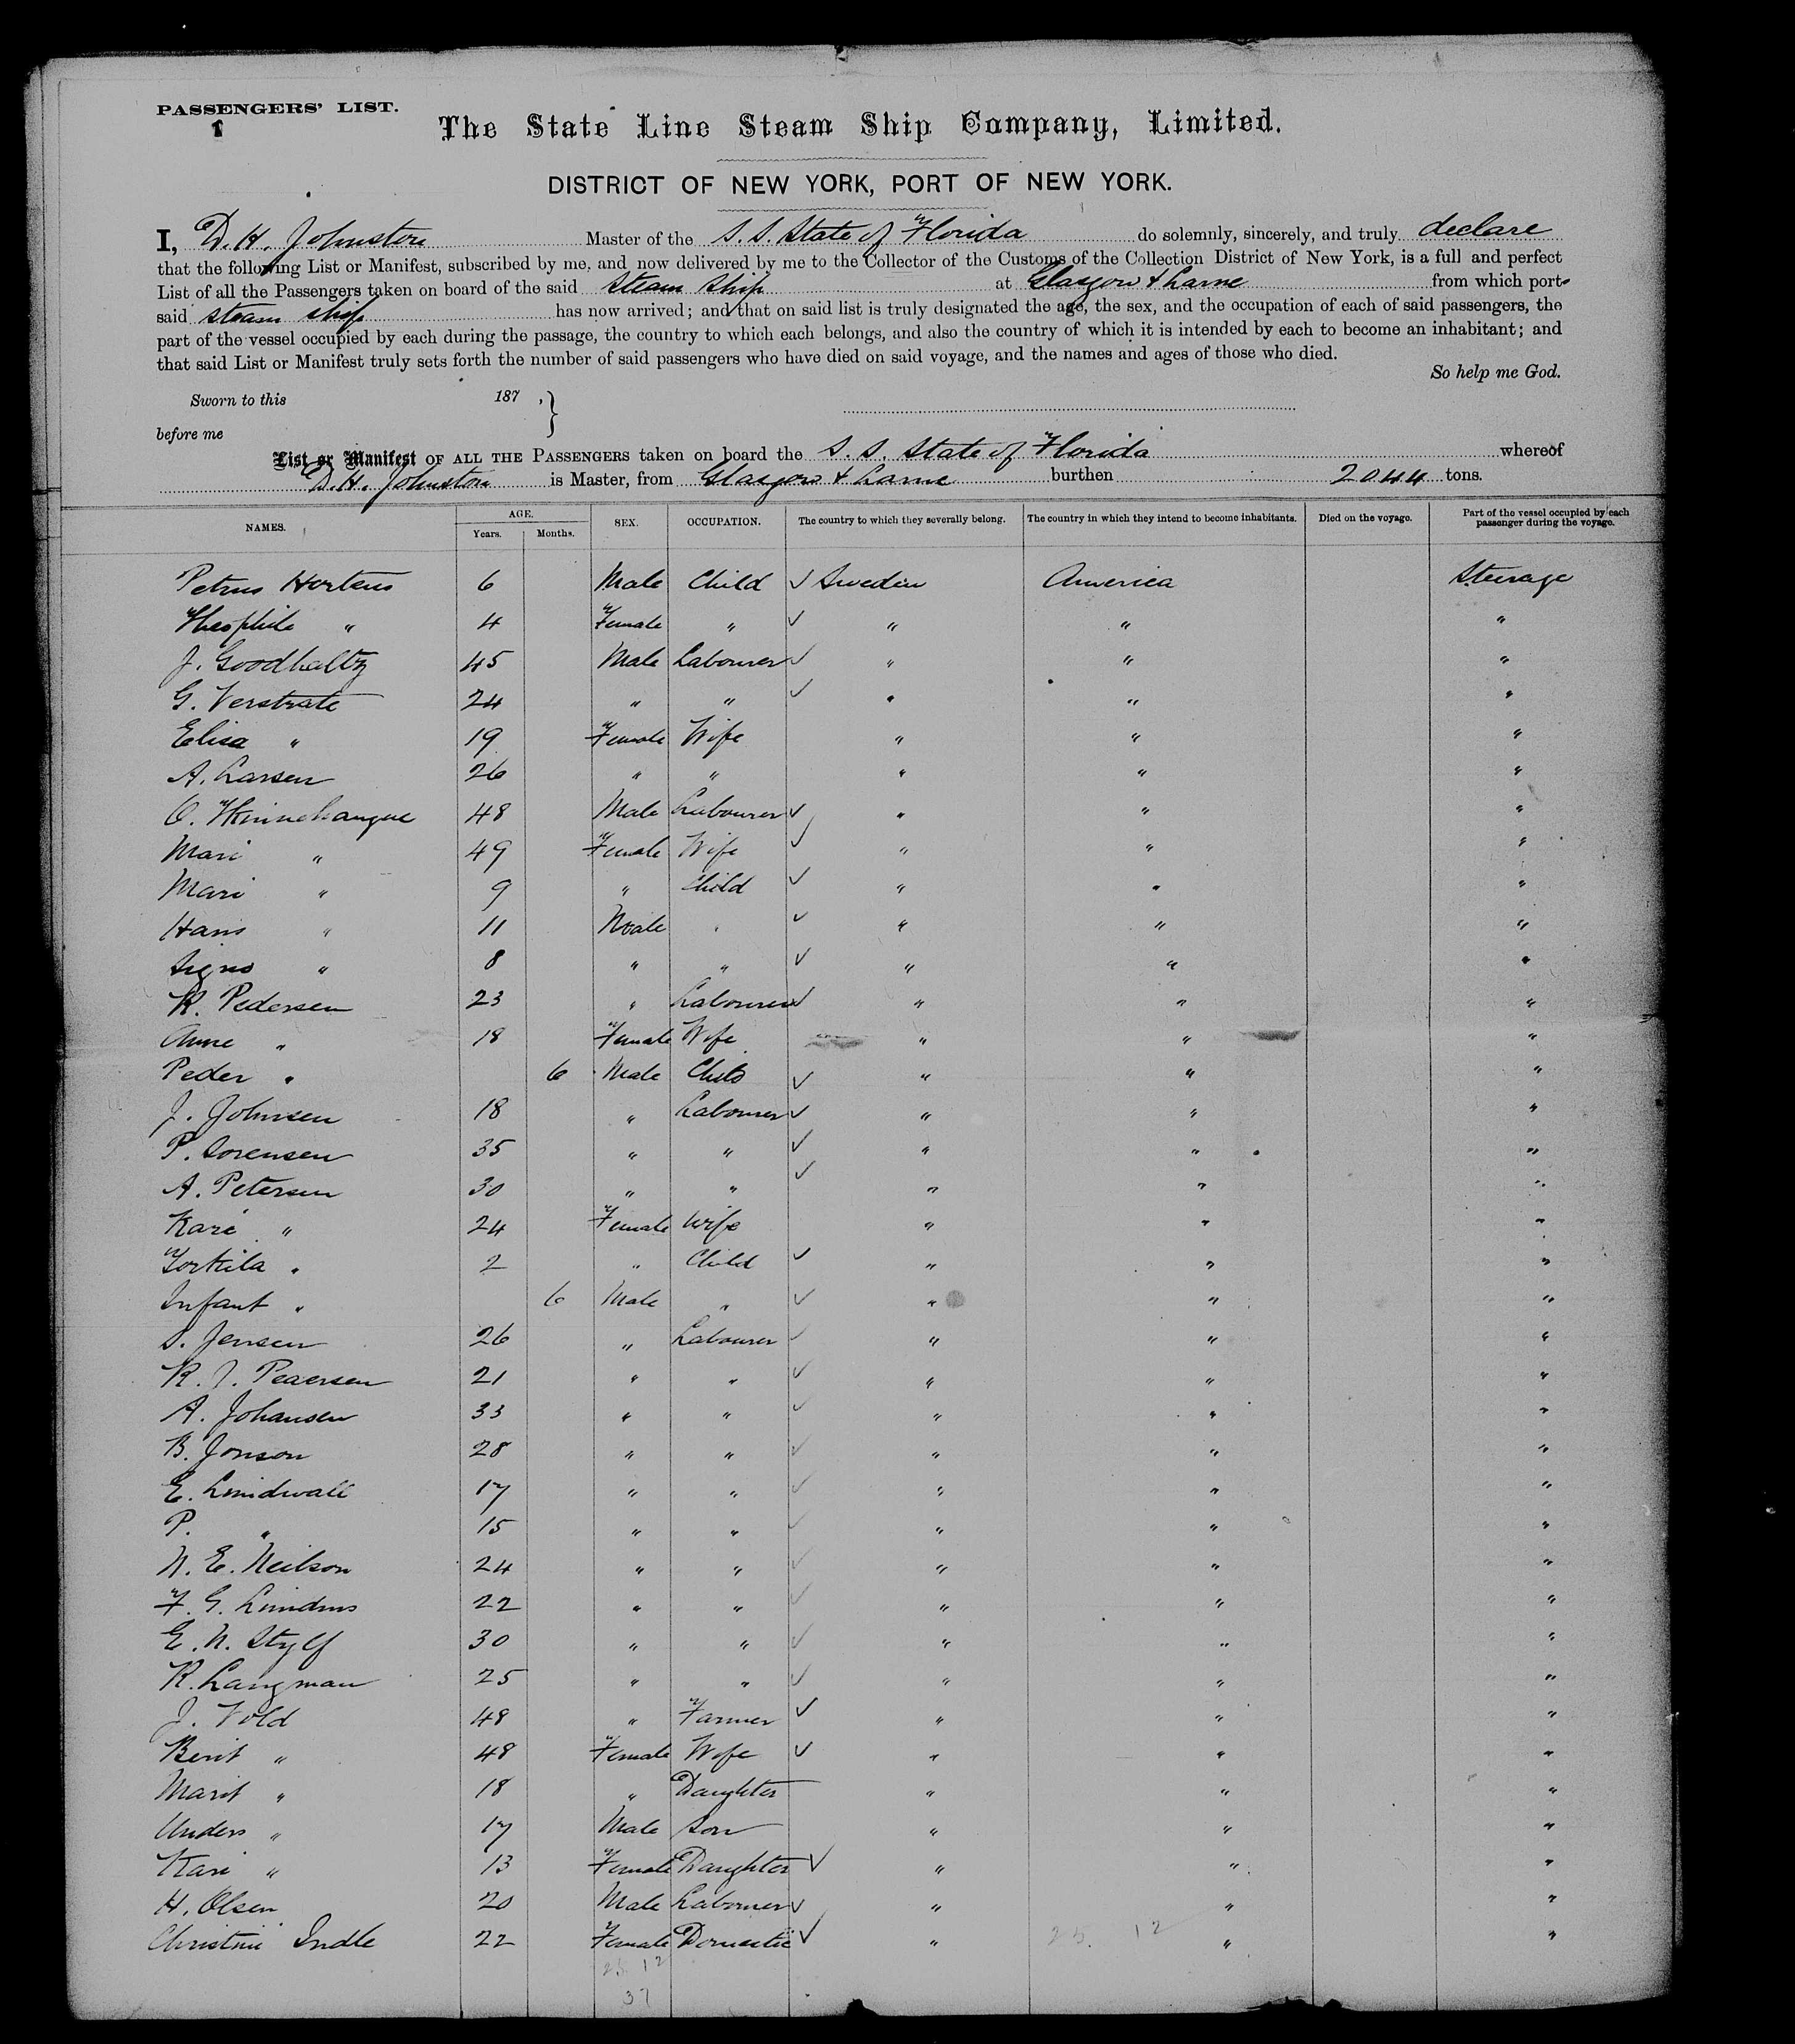 PASSENGERS' LIST.
The State Line Steam Ship Company, Limited.
DISTRICT OF NEW YORK, PORT OF NEW YORK.
I, D. H. Johnston Master of the S. S. State of Florida do solemnly, sincerely, and truly declare
that the following List or Manifest, subscribed by me, and now delivered by me to the Collector of the Customs of the Collection District of New York, is a full and perfect
List of all the Passengers taken on board of the said Steam Ship at Glasgow & Larne from which ports
said steam ship has now arrived; and that on said list is truly designated the age, the sex, and the occupation of each of said passengers, the
part of the vessel occupied by each during the passage, the country to which each belongs, and also the country of which it is intended by each to become an inhabitant; and
that said List or Manifest truly sets forth the number of said passengers who have died on said voyage, and the names and ages of those who died.
So help me God.
Sworn to this 187 ,
before me
List or Manifest OF ALL THE PASSENGERS taken on board the S. S. State of Florida whereof
D. H. Johnston is Master, from Glasgow & Larne burthen 2044 tons.
NAMES. AGE. Years. Months. SEX. OCCUPATION. The country to which they severally belong. The country in which they intend to become inhabitants. Died on the voyage. Part of the vessel occupied by each passenger during the voyage.
Petrus Hortens 6 Male Child ✓ Sweden America Steerage
Theophile " 4 Female " ✓ " " "
J. Goodhaltz 45 Male Labourer ✓ " " "
G. Verstrate 24 " " ✓ " " "
Elisa " 19 Female Wife " " "
A. Larsen 26 " " " " "
O. 48 Male Labourer ✓ " " "
Mari " 49 Female Wife ✓ " " "
Mari " 9 " Child ✓ " " "
Hans " 11 Male " ✓ " " "
" 8 " " ✓ " " "
K. Pedersen 23 " Labourer ✓ " " "
Anne " 18 Female Wife " " "
Peder " 6 Male Child ✓ " " "
J. Johnsen 18 " Labourer ✓ " " "
P. Sorensen 35 " " ✓ " " "
A. Petersen 30 " " ✓ " " "
Kari " 24 Female Wife " " "
Torkila " 2 " Child ✓ " " "
Infant " 6 Male " ✓ " " "
S. Jensen 26 " Labourer ✓ " " "
K. J. Pedersen 21 " " ✓ " " "
A. Johansen 33 " " ✓ " " "
B. Jonson 28 " " ✓ " " "
E. Lindwall 17 " " ✓ " " "
P. " 15 " " ✓ " " "
N. E. Neilson 24 " " ✓ " " "
F. G. 22 " " ✓ " " "
E. N. Stylf 30 " " ✓ " " "
K. Langman 25 " " ✓ " " "
J. Vold 48 " Farmer ✓ " " "
Berit " 48 Female Wife ✓ " " "
Marit " 18 " Daughter " " "
Anders " 17 Male Son " " "
Kari " 13 Female Daughter ✓ " " "
H. Olsen 20 Male Labourer ✓ " " "
Christine Indle 22 Female Domestic ✓ " " "
25. 12
25 12
37